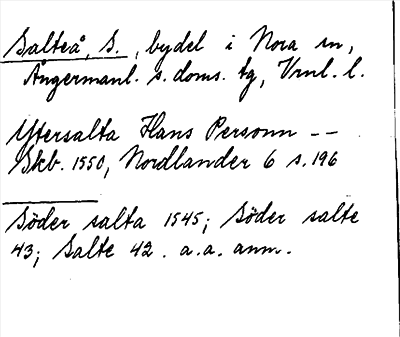 Salteå, S., bydel i Nora sn,
Ångermanl. s. doms. tg, Vrnl. l.
Ytersalta Hans Personn --
Skb. 1550, Nordlander 6 s. 196
Söder salta 1545; Söder salte
43; Salte 42. a.a. anm.